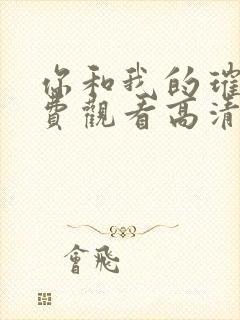 你和我的璀
費觀看高清
會飛